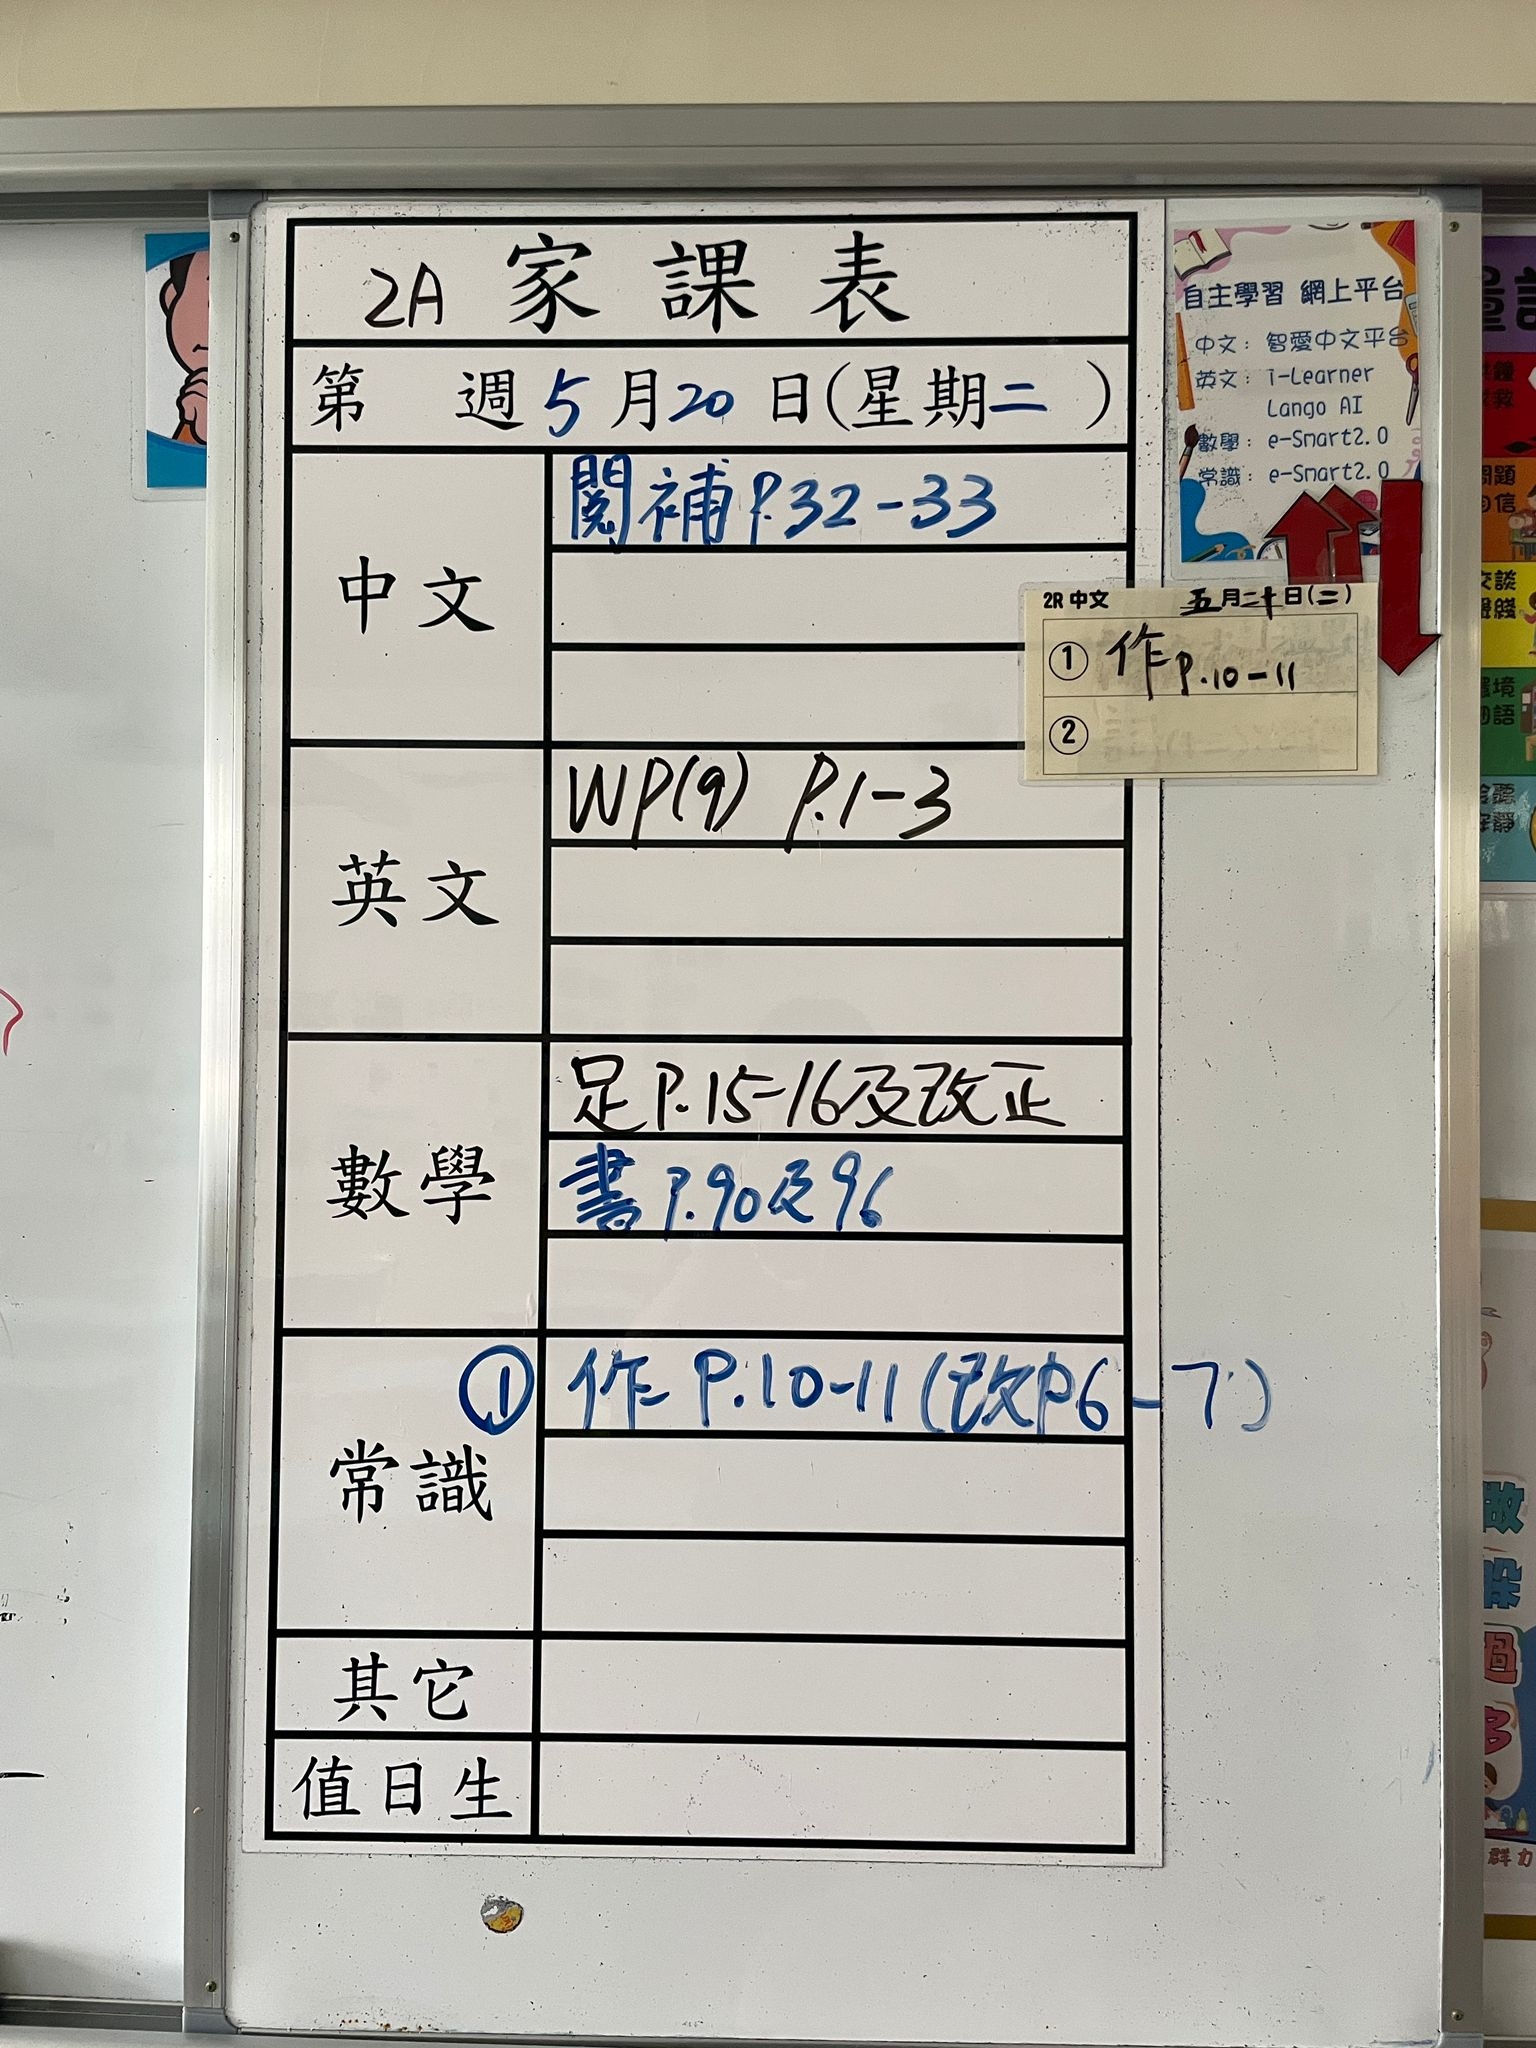 2A 家課表
第 週 5月20日(星期二)
中文
閱補P.32-33
英文
WP(9) P.1-3
數學
足P.15-16及改正
書P.90及96
常識
① 作 P.10-11(改P6-7)
其它
值日生
自主學習 網上平台
中文: 智愛中文平台
英文: i-Learner
Lango AI
數學: e-Smart2.0
常識: e-Smart2.0
2R 中文 五月二十日(二)
① 作 P.10-11
②